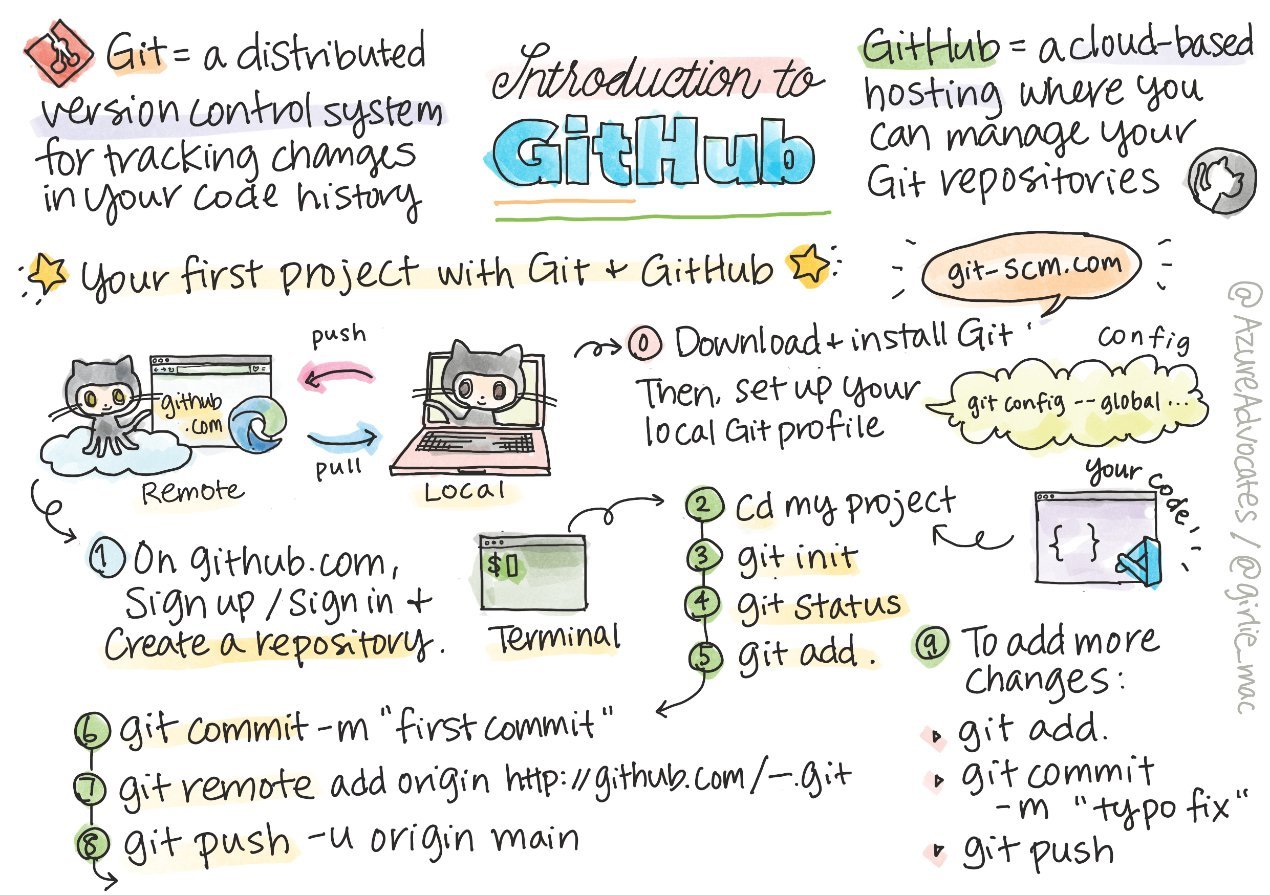 Git = a distributed
version control system
for tracking changes
in your code history
Introduction to
GitHub
GitHub = a cloud-based
hosting where you
can manage your
Git repositories
Your first project with Git + GitHub
git-scm.com
github
.com
Remote
push
pull
Local
0 Download + install Git
Then, set up your
local Git profile
config
git config --global ...
1 On github.com,
Sign up / Sign in +
Create a repository.
$
Terminal
2 cd my project
3 git init
4 git status
5 git add .
your code!
{ }
6 git commit -m "first commit"
7 git remote add origin http://github.com/--.git
8 git push -u origin main
9 To add more
changes:
git add.
git commit
-m "typo fix"
git push
@AzureAdvocates / @girlie_mac